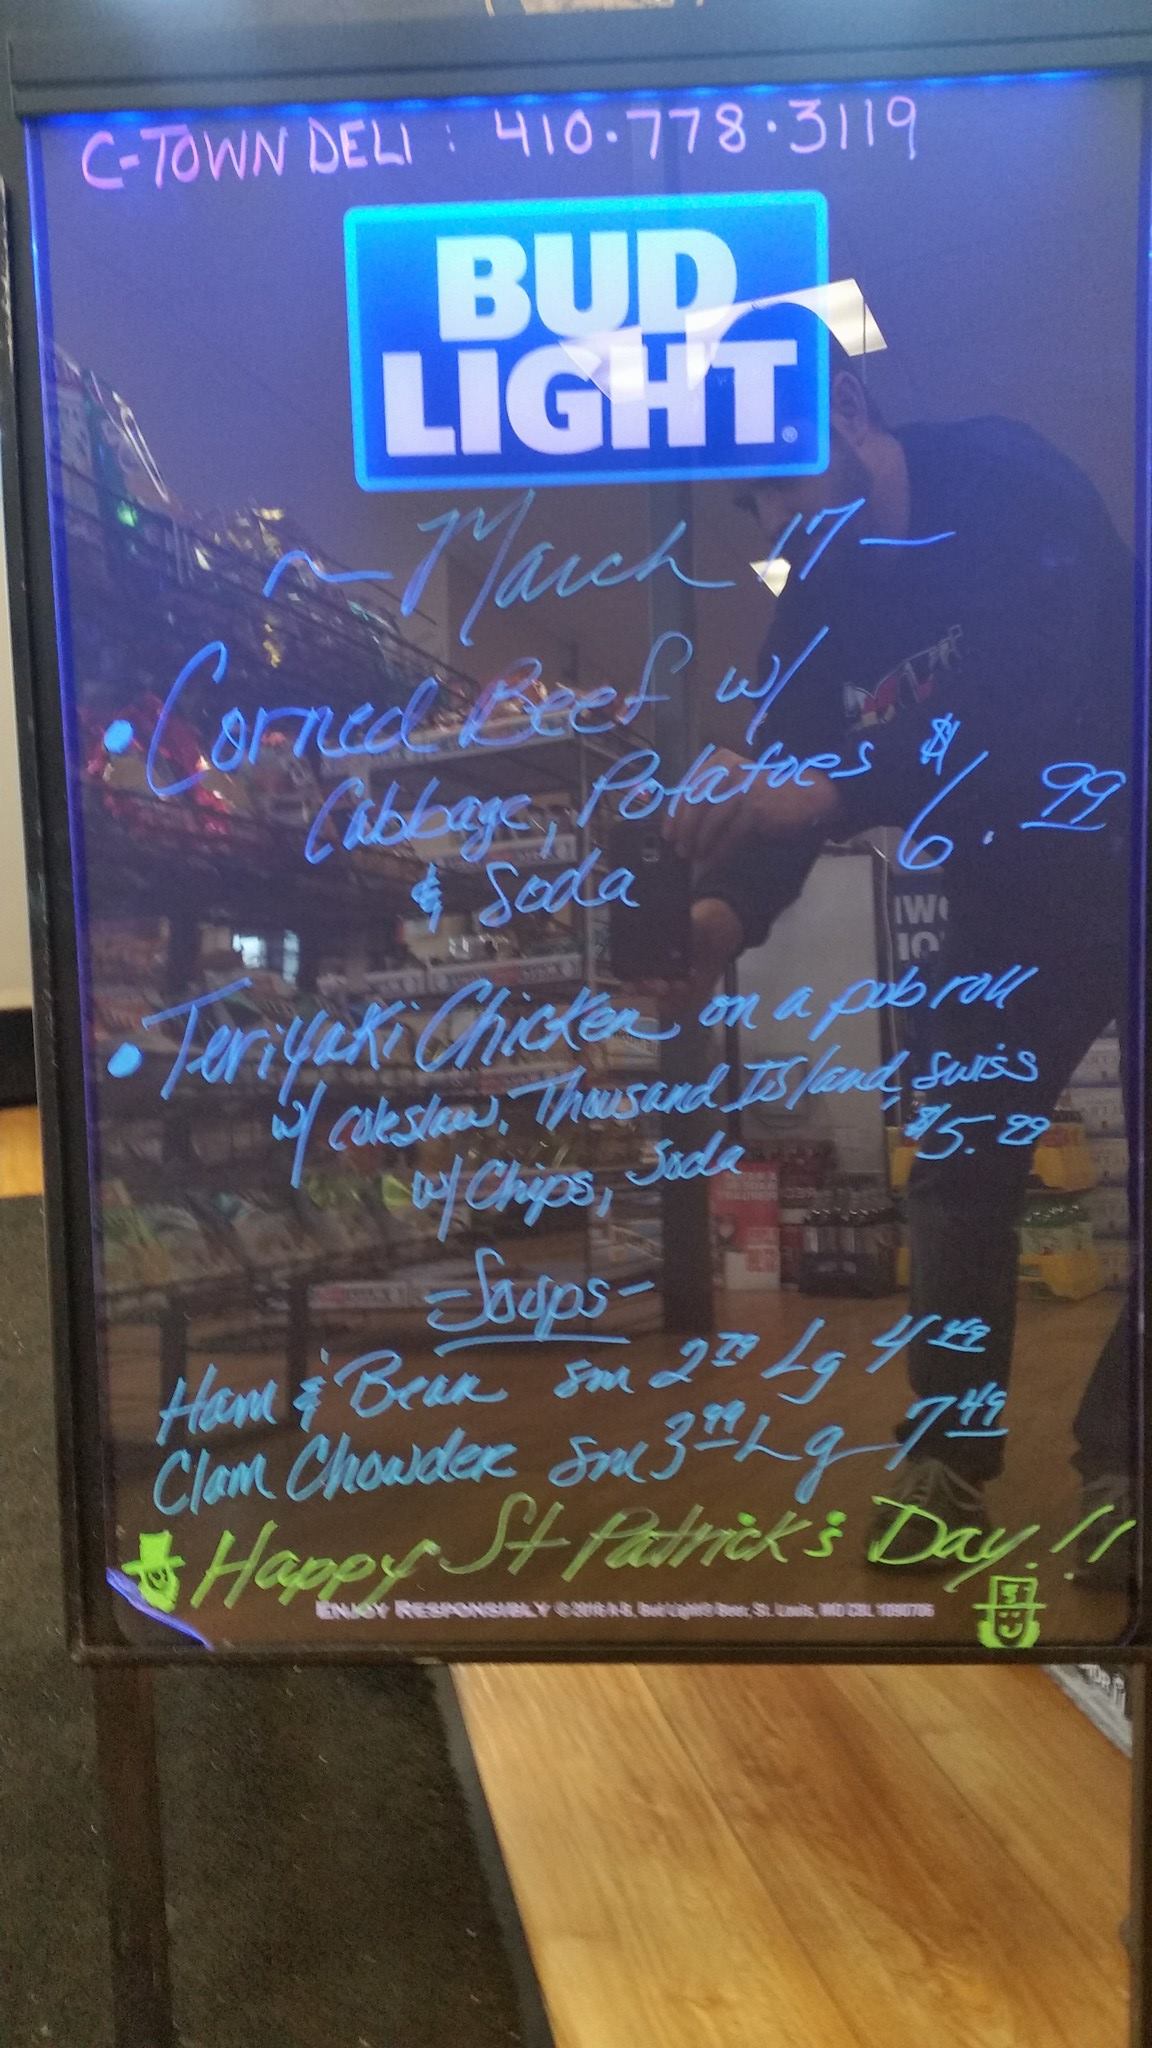 C-TOWN DELI : 410·778·3119
BUD
LIGHT®
~ March 17 —
• Corned Beef w/
Cabbage, Potatoes $6.99
& Soda
• Teriyaki Chicken on a pub roll
w/ coleslaw, Thousand Island, swiss
w/ Chips, Soda $5.99
-Soups-
Ham & Bean sm 2.79 Lg 4.49
Clam Chowder sm 3.99 Lg 7.49
Happy St Patrick's Day!!
ENJOY RESPONSIBLY © 2016 A-B, Bud Light® Beer, St. Louis, MO